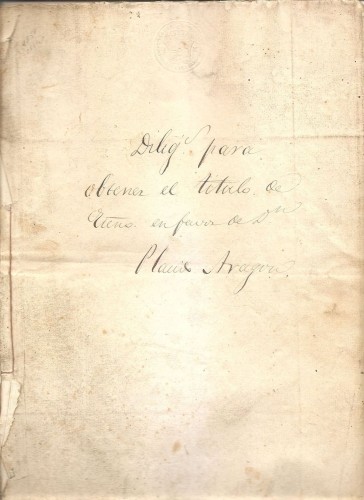 Dilig.ˢ para
obtener el titulo de
en favor de Dⁿ
Aragon